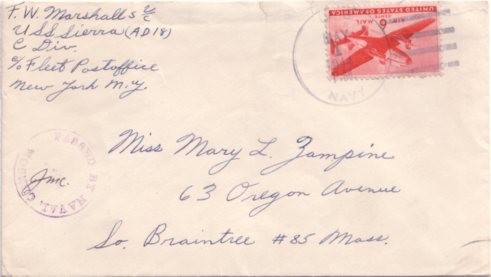 F. W. Marshall S 2/c
U.S.S. Sierra (AD18)
C Div.
c/o Fleet Postoffice
New York N.Y.
UNITED STATES OF AMERICA
AIR MAIL
6
MAY
NAVY
PASSED BY NAVAL CENSOR
Miss Mary L. Zampine
63 Oregon Avenue
So. Braintree #85 Mass.